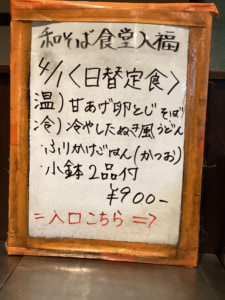 和そば食堂入福
4/1〈日替定食〉
温)甘あげ卵とじそば
冷)冷やしたぬき風うどん
・ふりかけごはん(かつお)
・小鉢2品付
¥900-
=入口こちら=>